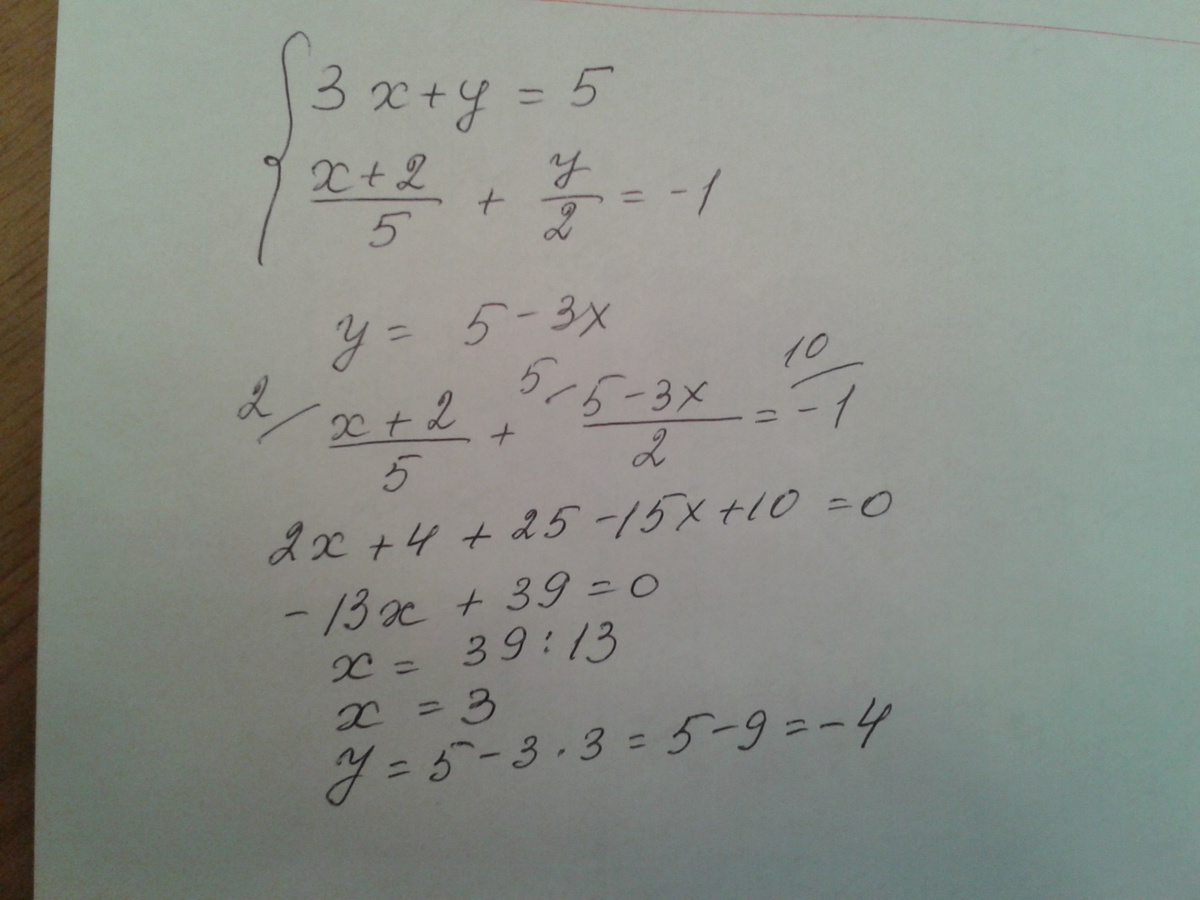 3x+y = 5
x+2/5 + y/2 = -1
y = 5-3x
2/ x+2/5 + 5/ 5-3x/2 = 10/ -1
2x+4+25-15x+10=0
-13x+39=0
x = 39:13
x = 3
y = 5-3·3 = 5-9 = -4